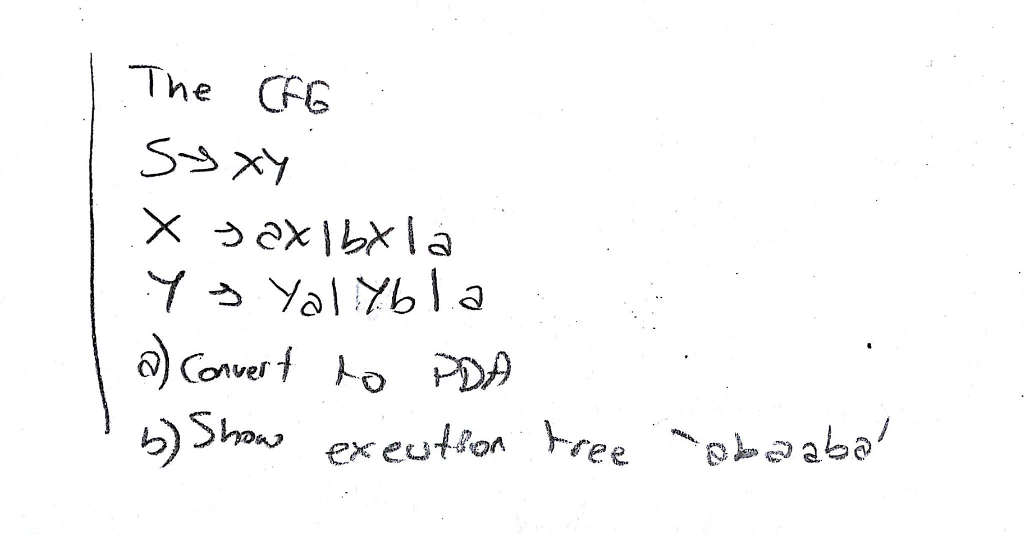 The CFG
S → XY
X → aX | bX | a
Y → Ya | Yb | a
a) Convert to PDA
b) Show execution tree `abaaba'